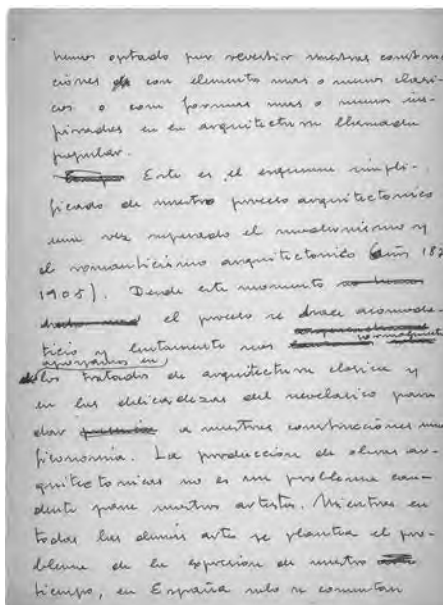 hemos optado por revestir nuestras construc
ciones con elementos mas o menos clasi-
cos o con formas mas o menos ins-
piradas en en arquitectura llamada
popular.
Este es el esquema simpli-
ficado de nuestro proceso arquitectonico
una vez superado el modernismo y
el romanticismo arquitectonico (años 187
1905). Desde este momento
el proceso se hace acomoda-
ticio y lentamente mas
apoyarse en
los tratados de arquitectura clasica y
en las delicadezas del neoclasico para
dar a nuestras construcciones una
fisonomía. La producción de obras ar-
quitectonicas no es un problema can-
dente para nuestros artistas. Mientras en
todas las demás artes se plantea el pro-
blema de la expresión de nuestro
tiempo, en España solo se comentan